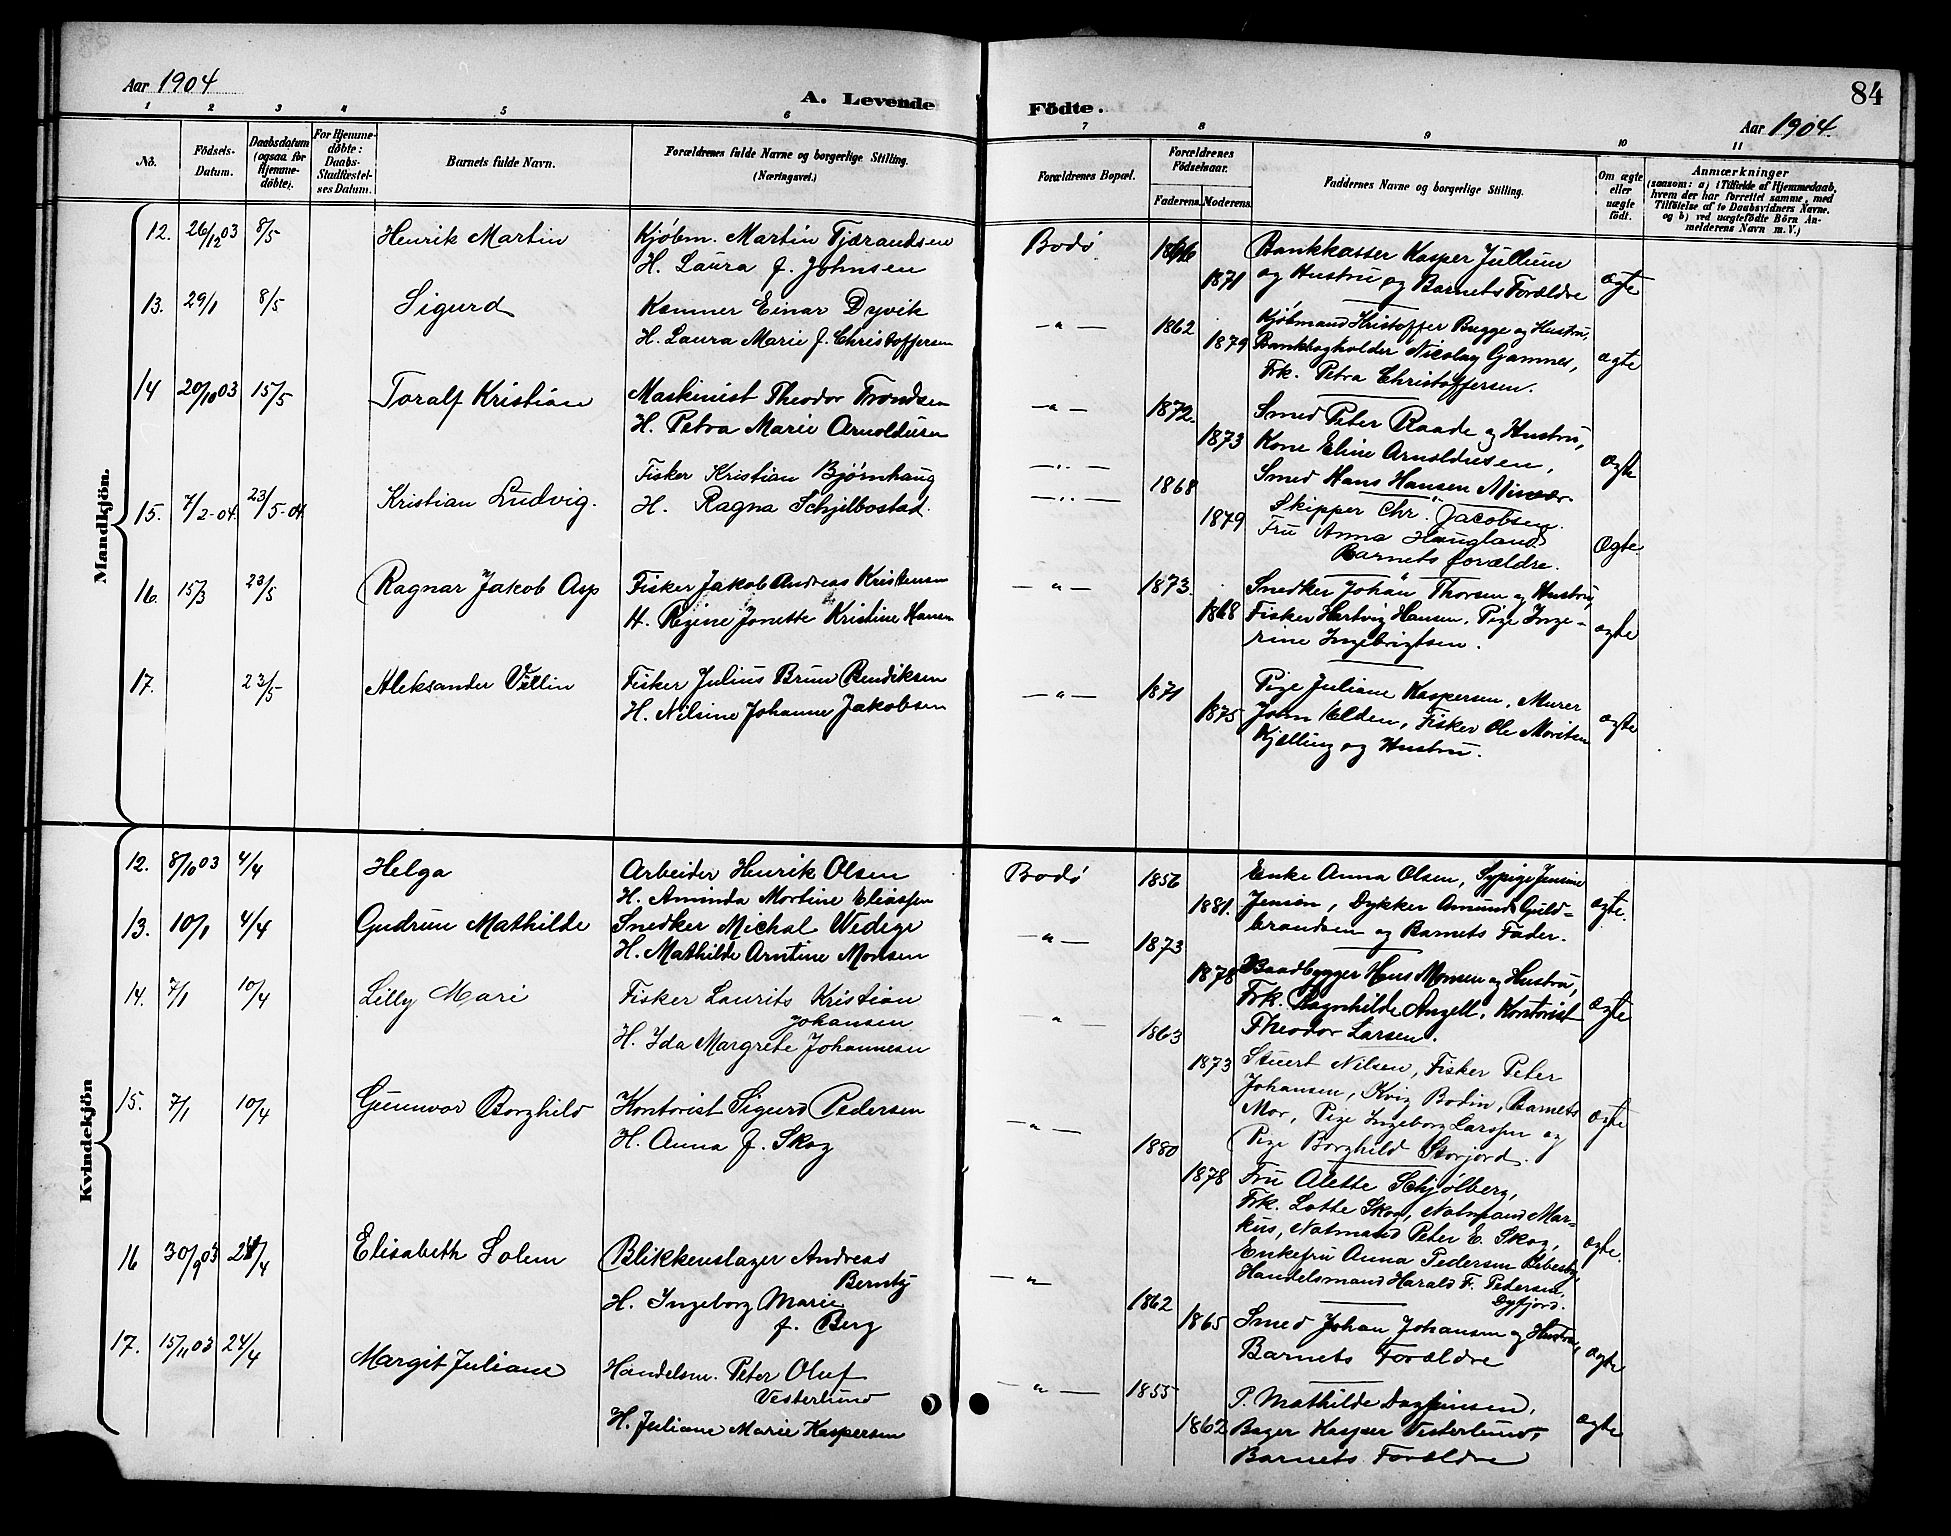 Aar 1904
A. Levende
Födte.
84
Aar 1904.
1 2 3 4 5 6 7 8 9 10 11
No.
Födsels-
Datum.
Daabsdatum
(ogsaa for
Hjemme-
döbte).
For Hjemme-
döbte:
Daabs-
Stadfæstel-
ses Datum.
Barnets fulde Navn.
Forældrenes fulde Navne og borgerlige Stilling.
(Næringsvei.)
Forældrenes Bopæl.
Forældrenes
Födselsaar.
Faderens. Moderens.
Faddernes Navne og borgerlige Stilling.
Om ægte
eller
uægte
födt.
Anmærkninger
(saasom: a) i Tilfælde af Hjemmedaab,
hvem der har forrettet samme, med
Tilföielse af to Daabsvidners Navne.
og b) ved uægtefödte Börn An-
melderens Navn m. V.)
Mandkjön.
12. 26/12 03 8/5 Henrik Martin
Kjøbm. Martin Tjærandsen
H. Laura f. Johnsen
Bodø
1871
Bankkasser Kasper Jullum
og Hustru og Barnets Forældre
ægte
13. 29/1 8/5 Sigurd
Kæmner Einar Dyvik
H. Laura Marie f. Christoffersen
— " —
1862
1879
Kjøbmand Kristoffer Bugge og Hustru,
Bankbogholder Nicolay Gamnes,
Frk. Petra Christoffersen.
ægte
14 20/10 03 15/5 Toralf Kristian
Maskinist Theodor Trondsen
H. Petra Marie Arnoldusen
— " —
1872.
1873
Smed Peter Raade og Hustru,
Kone Eline Arnoldusen,
Smed Hans Hansen
ægte
15. 7/2-04. 23/5-04. Kristian Ludvig.
Fisker Kristian Bjørnhaug
H. Ragna Schjelbostad.
— " —
— " —
1868
1879
Skipper Chr. Jacobsen.
Fru Anna Haugland
Barnets forældre.
Ægte.
16. 15/3 23/5 Ragnar Jakob Asp
Fisker Jakob Andreas Kristensen
H. Regine Jonette Kristine Hansen
— " —
1873.
1868
Snedker Johan Thorsen og Hustru,
Fisker Hartvig Hansen, Pige Inge-
rine Ingebrigtsen.
ægte
17. 23/5 Aleksander Vellin
Fisker Julius Brun Bendiksen
H. Nilsine Johanne Jakobsen
— " —
1871
1875
Pige Juliane Kaspersen, Murer
Jorn Elden, Fisker Ole Moritsen
Kjelling og Hustru.
ægte
Kvindekjön
12. 8/10 03 4/4 Helga
Arbeider Henrik Olsen
H. Aminda Mortine Eliassen
Bodø
1856
1881.
Enke Anna Olsen, Sypige Jensine
Jenson, Dykker Amund Guld-
brandsen og Barnets Fader.
ægte.
13. 10/1 4/4 Gudrun Mathilde
Snedker Michal Wedige
H. Mathilde Arntine Monsen
— " —
1873
1878
Baadbygger Hans Monsen og Hustru,
Frk. Ragnhilde Angell, Kontorist
Theodor Larsen.
ægte
14. 7/1 10/4 Lilly Mari
Fisker Laurits Kristian
Johansen
H. Ida Margrete Johannesen
— " —
1863
1873
Stuert Nilsen, Fisker Peter
Johansen, Kviz Bodin, Barnets
Mor, Pige Ingeborg Larssen og
Pige Borghild Storjord.
ægte
15. 7/1 10/4 Gunnvor Borghild
Kontorist Sigurd Pedersen
H. Anna f. Skog
— " —
1880
1878
Fru Alette Schjølberg,
Frk. Lotte Skog, Notmand Mar-
kus, Notmand Peter E. Skog,
Enkefru Anna Pedersen
Handelsmand Harald F. Pedersen,
Dyfjord.
ægte.
16 30/9 03 24/4 Elisabeth Solem
Blikkenslager Andreas
Berntz
H. Ingeborg Marie
f. Berg
— " —
1862
1865
Smed Johan Johansen og Hustru,
Barnets Forældre
ægte
17. 15/11 03 24/4 Margit Juliane
Handelsm. Peter Oluf
Vesterlund
H. Juliane Marie Kaspersen
— " —
1855
1862
P. Mathilde Dagfinsen,
Bager Kasper Vesterlund,
Barnets Forældre
ægte